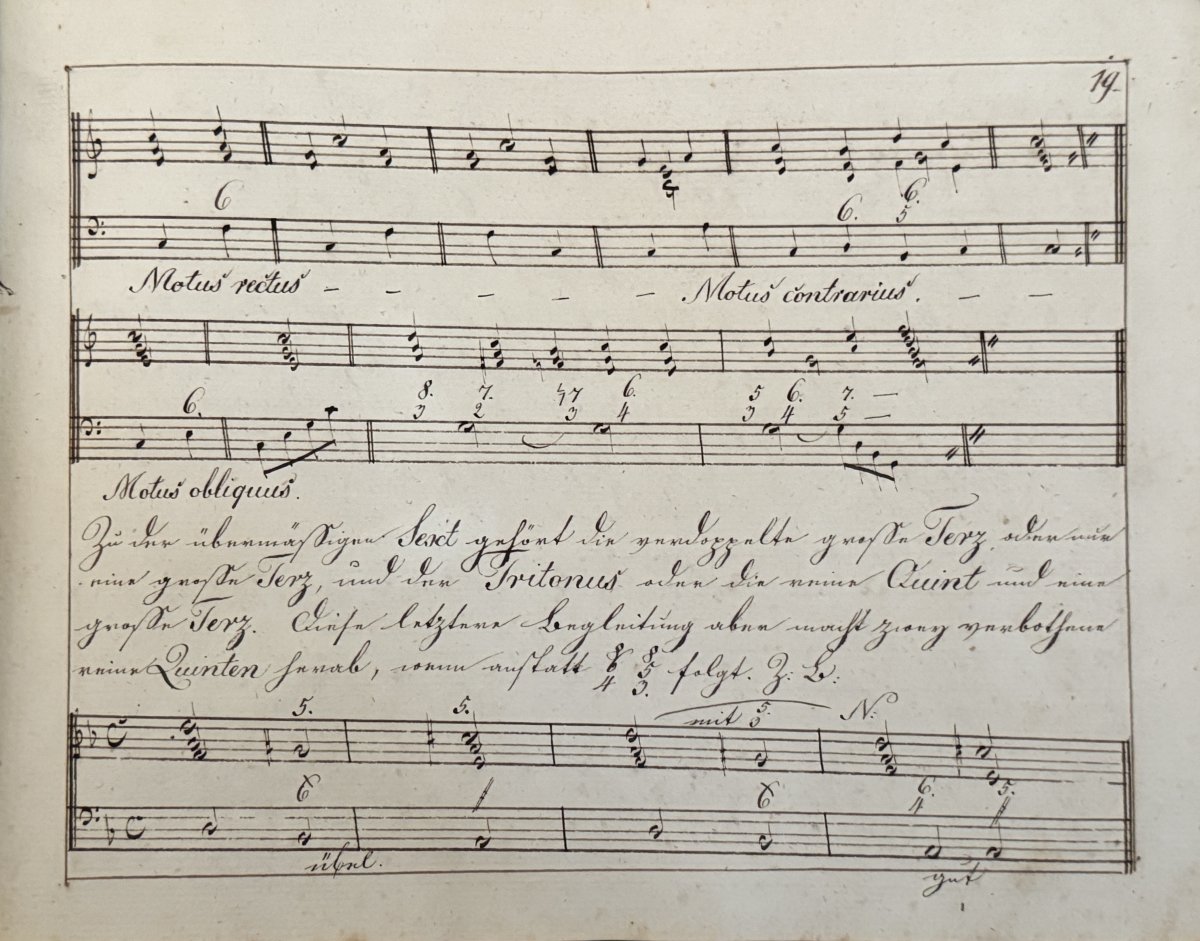 19.
6
6. 6.
5
Motus rectus – – – – – Motus contrarius. – –
8. 7. ♮7 6. 5 6. 7. –
6. 3 2 3 4 3 4 5 –
Motus obliquus.
Zu der übermässigen Sext gehört die verdoppelte grosse Terz, oder nur
eine grosse Terz, und der Tritonus oder die reine Quint und eine
grosse Terz. Diese letztere Begleitung aber macht zwey verbothene
reine Quinten herab, wenn anstatt 8 8
6 5
4 3. folgt. Z: B:
5. 5. mit 5 N:
3
6 6 6. 5.
4
übel. gut